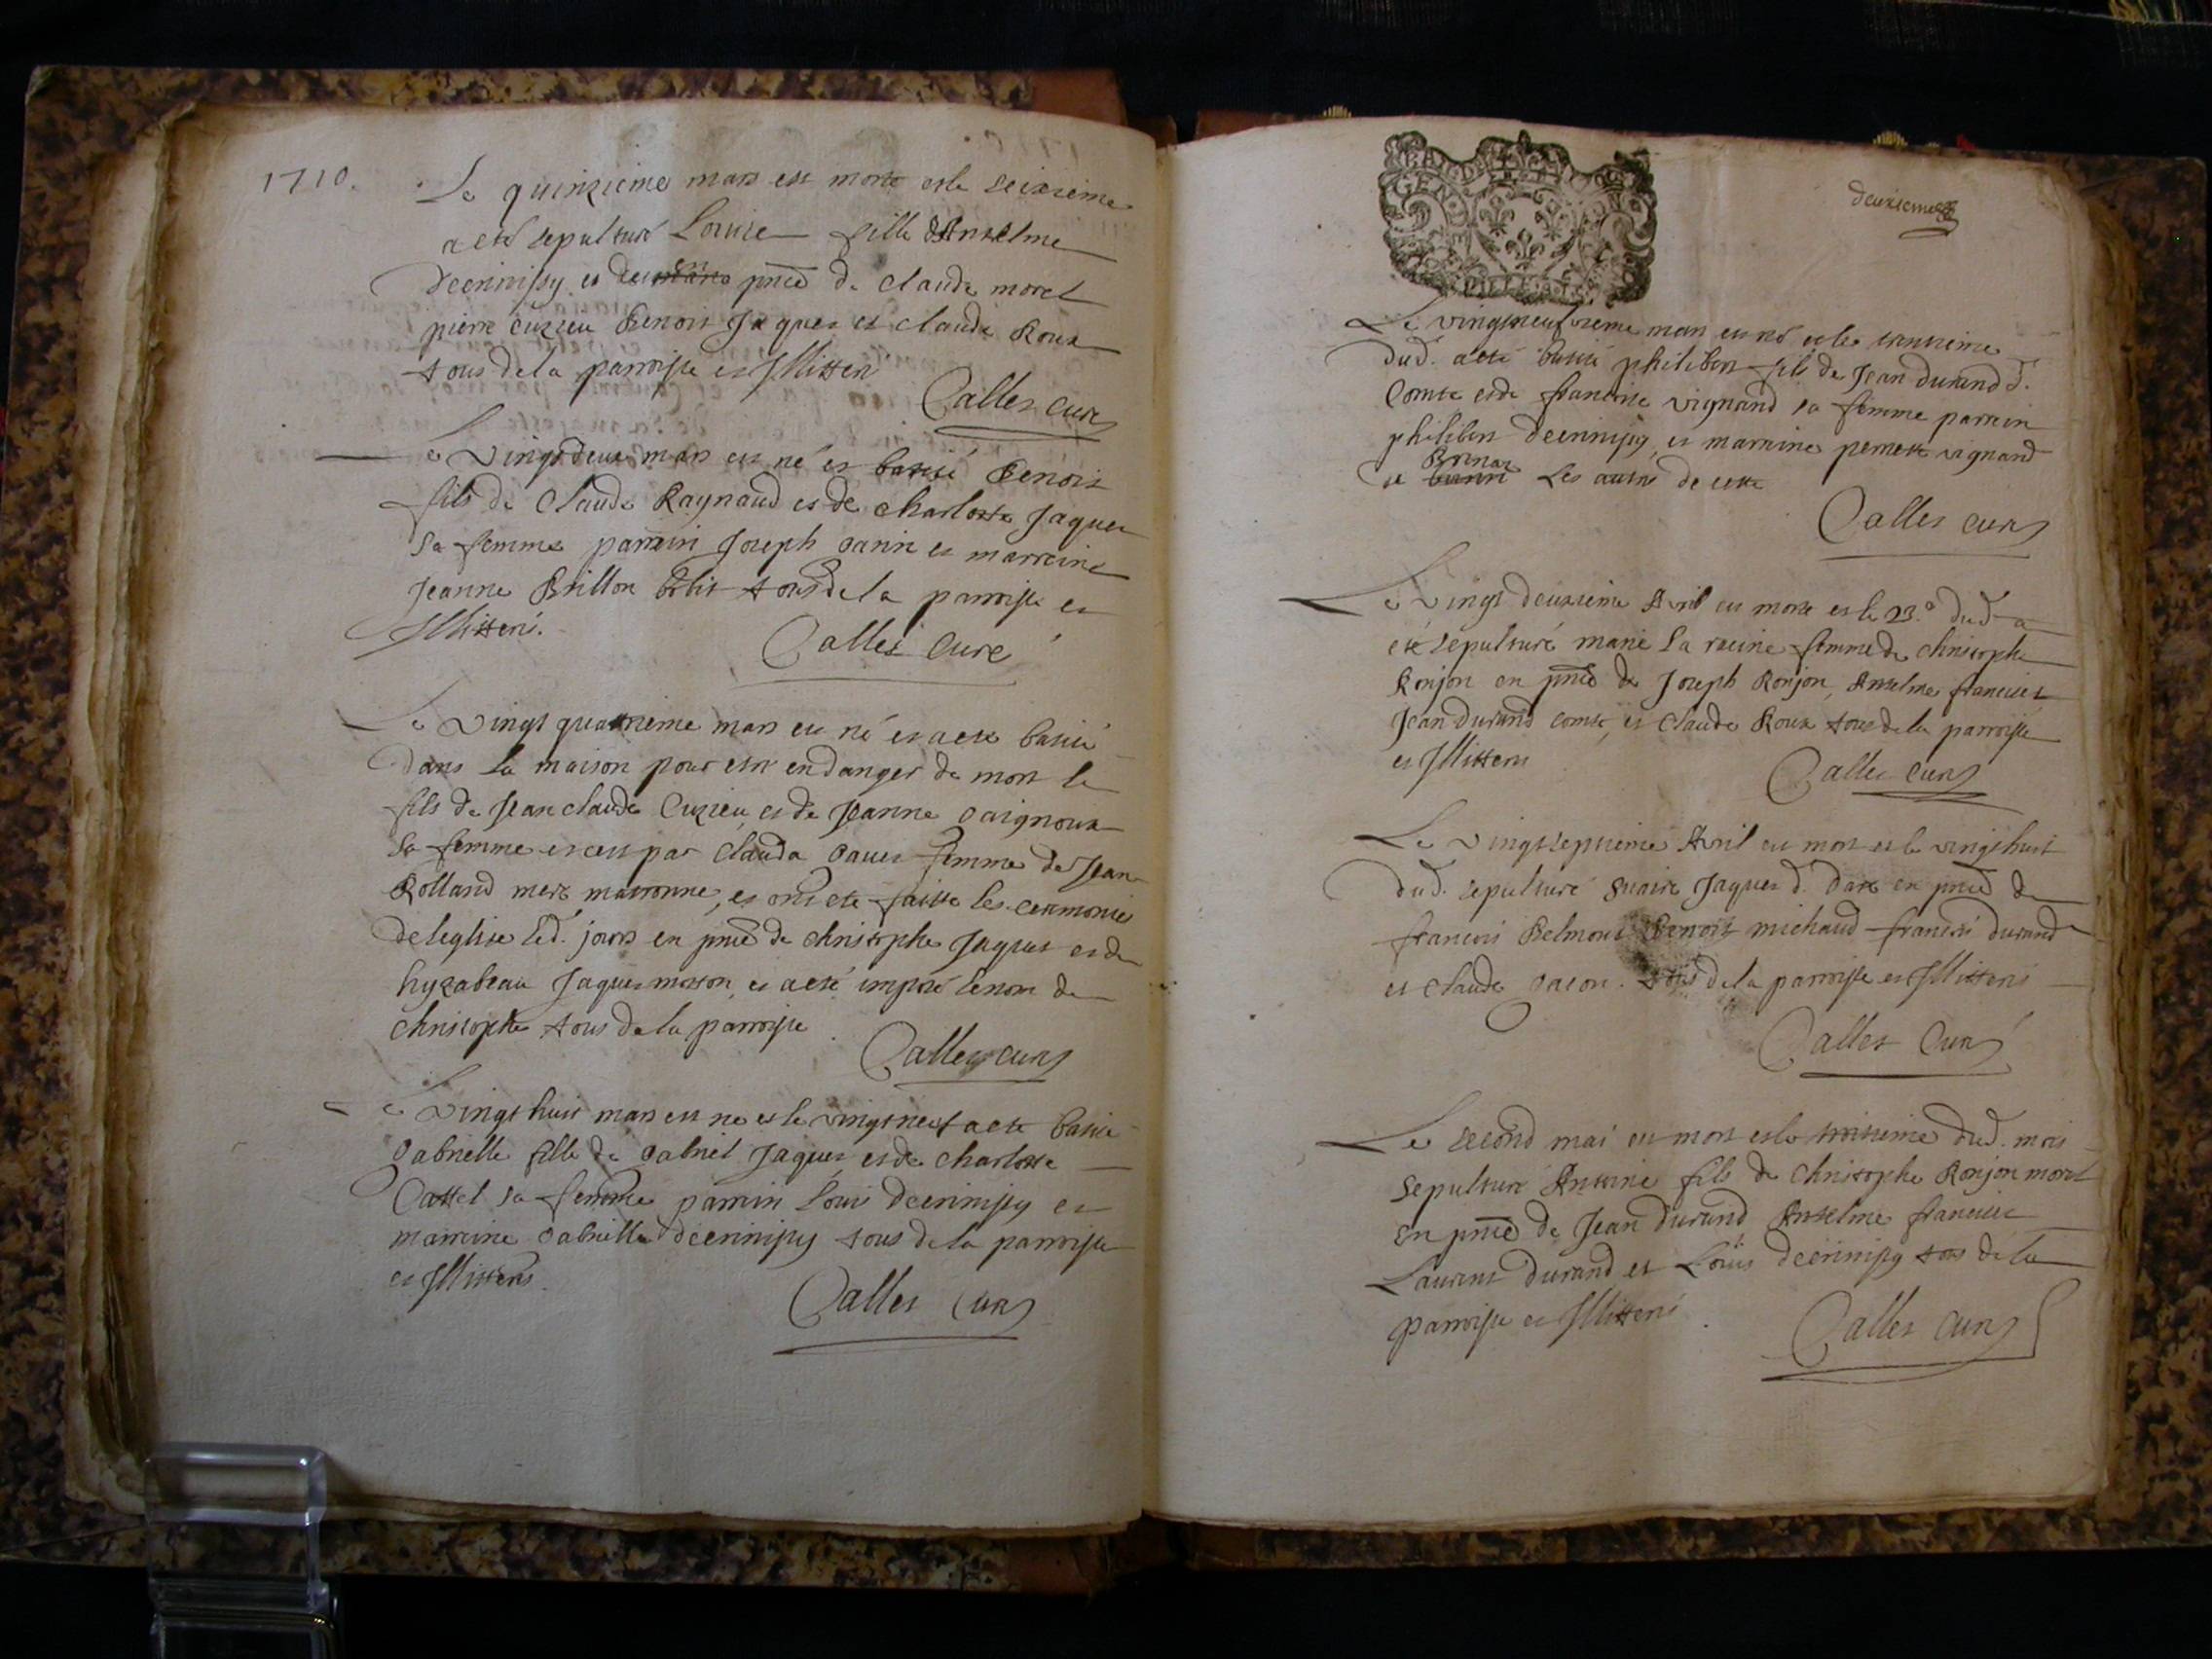 1710.
Le quinzieme mars est morte et le seizieme
a eté sepulturé Louise fille d'Anselme
Decrinissy et en pnce de Claude morel
pierre Cuzieu Benoit Jaques et claude Roux
tous de la parroisse et Illitteré
Calles curé
Le Vingtdeux mars est né et batisé Benoit
fils de Claude Raynaud et de charlotte Jaques
sa femme parrein Joseph et marreine
Jeanne Brillon tous de la parroisse et
Illitteré.
Calles Curé
Le Vingt quatrieme mars est né et a ete batisé
Dans la maison pour estre en danger de mort le
fils de Jean claude Cuzieu et de Jeanne
sa femme et ce par Clauda femme de Jean
Rolland mere matronne, et ont ete faitte les ceremonie
de leglise led. jours en pnce de christophe Jaques et de
hyzabeau Jaques et a eté imposé le nom de
christophe tous de la parroisse
Calles curé
Le Vingt huit mars est né et le vingtneuf a ete batisé
Gabrielle fille de Gabriel Jaques et de charlotte
Cattel sa femme parrein Louis decrinissy et
marreine Gabrielle decrinissy tous de la parroisse
et Illitteré.
Calles Curé
GEN
deuxieme
Le vingtneufvieme mars est né et le trentieme
dud. a eté batisé philibert fils de Jean durand d.
Comte et de francoise vignand sa femme parrein
philibert decrinissy, et marreine pernette vignand
de Les autres de cette
Calles curé
Le Vingt deuxieme Avril est morte et le 23.e dud. a
eté sepulturé marie La racine femme de christophe
Ronjon en pnce de Joseph Ronjon, Anselme
Jean durand comte, et Claude Roux tous de la parroisse
et Illitteré
Calles curé
Le vingtseptieme Avril est mort et le vingthuit
dud. sepulturé Jaques d. en pnce de
francois Belmont Benoit michaud francois durand
et claude tous de la parroisse et Illitteré
Calles Curé
Le second mai est mort et le troisieme dud. mois
sepulturé Antoine fils de Christophe Ronjon morel
En pnce de Jean durand Anselme
Laurent durand et Louis decrinissy tous de la
parroisse et Illitteré
Calles curé